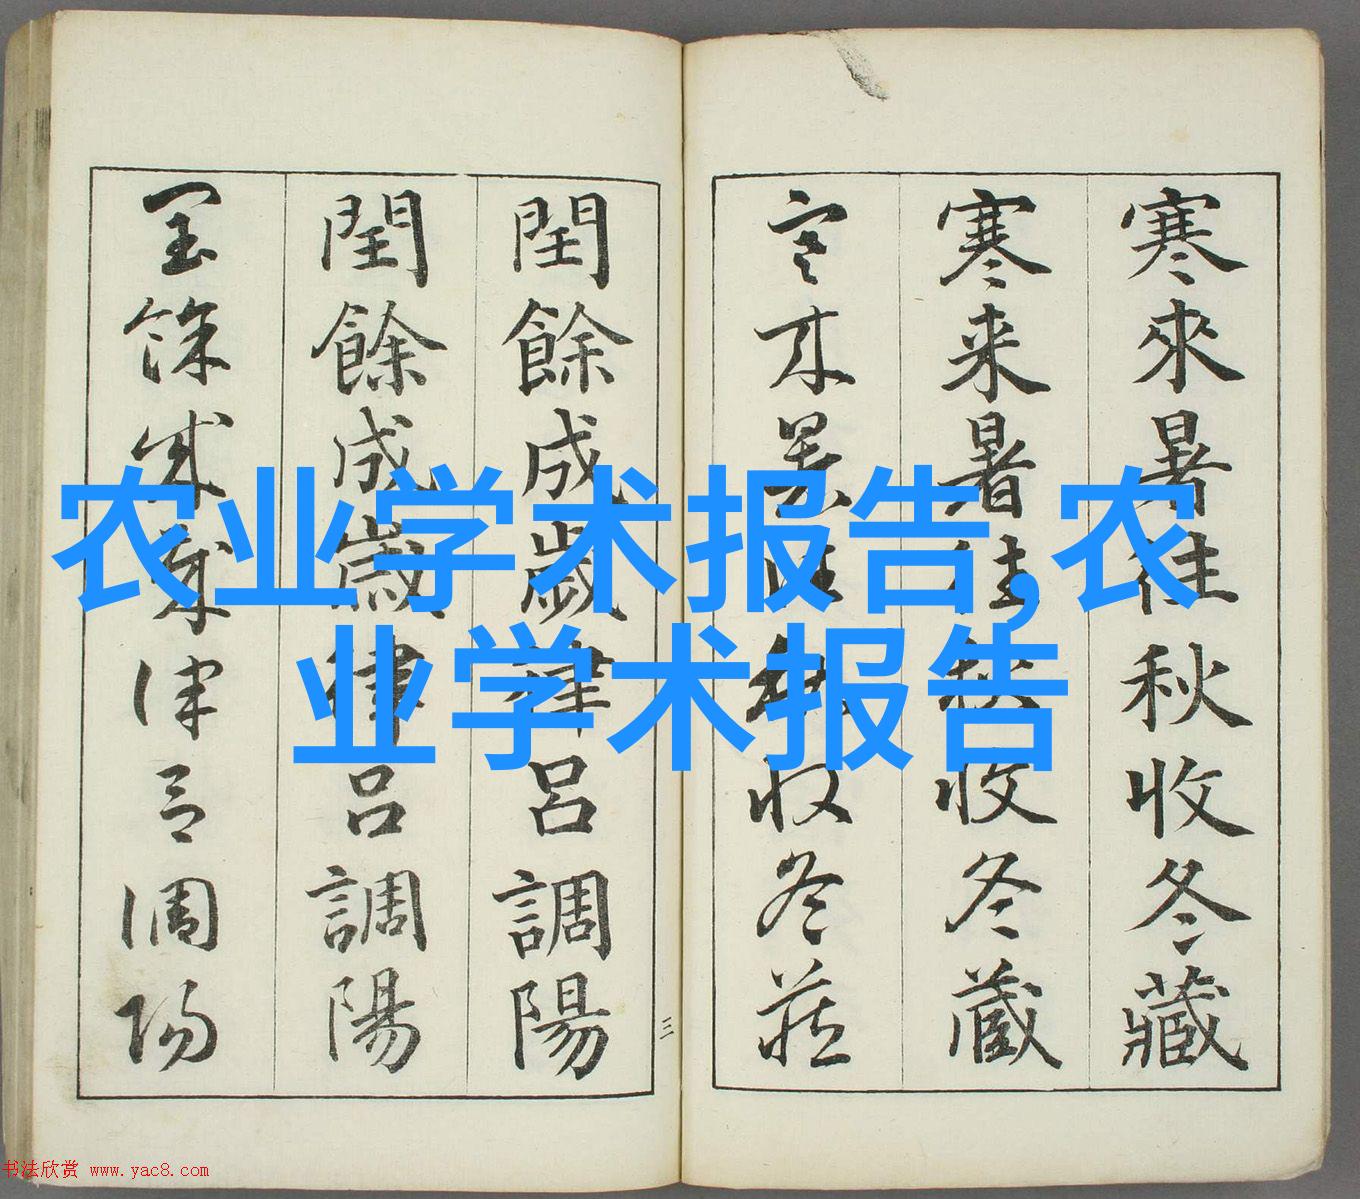 寒來暑往秋收冬藏
寒来暑往秋收冬蔵
寒来暑往秋收冬藏
閏餘成歲律呂調陽
閏餘成歲律呂調陽
閏餘成歲律呂調陽
三
农业学术报告,农
业学术报告
书法欣赏 www.yac8.com